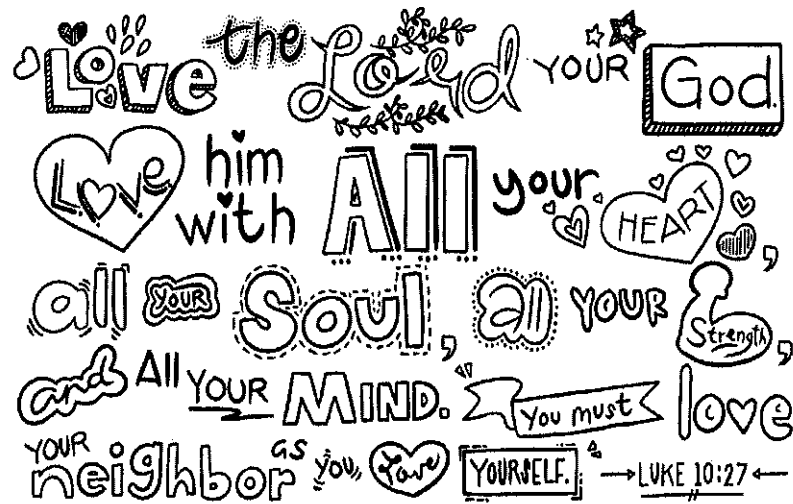 Love the Lord YOUR God.
Love him with All your HEART,
all YOUR Soul, all YOUR Strength,
and All YOUR MIND. You must love
YOUR neighbor as you Love YOURSELF. LUKE 10:27